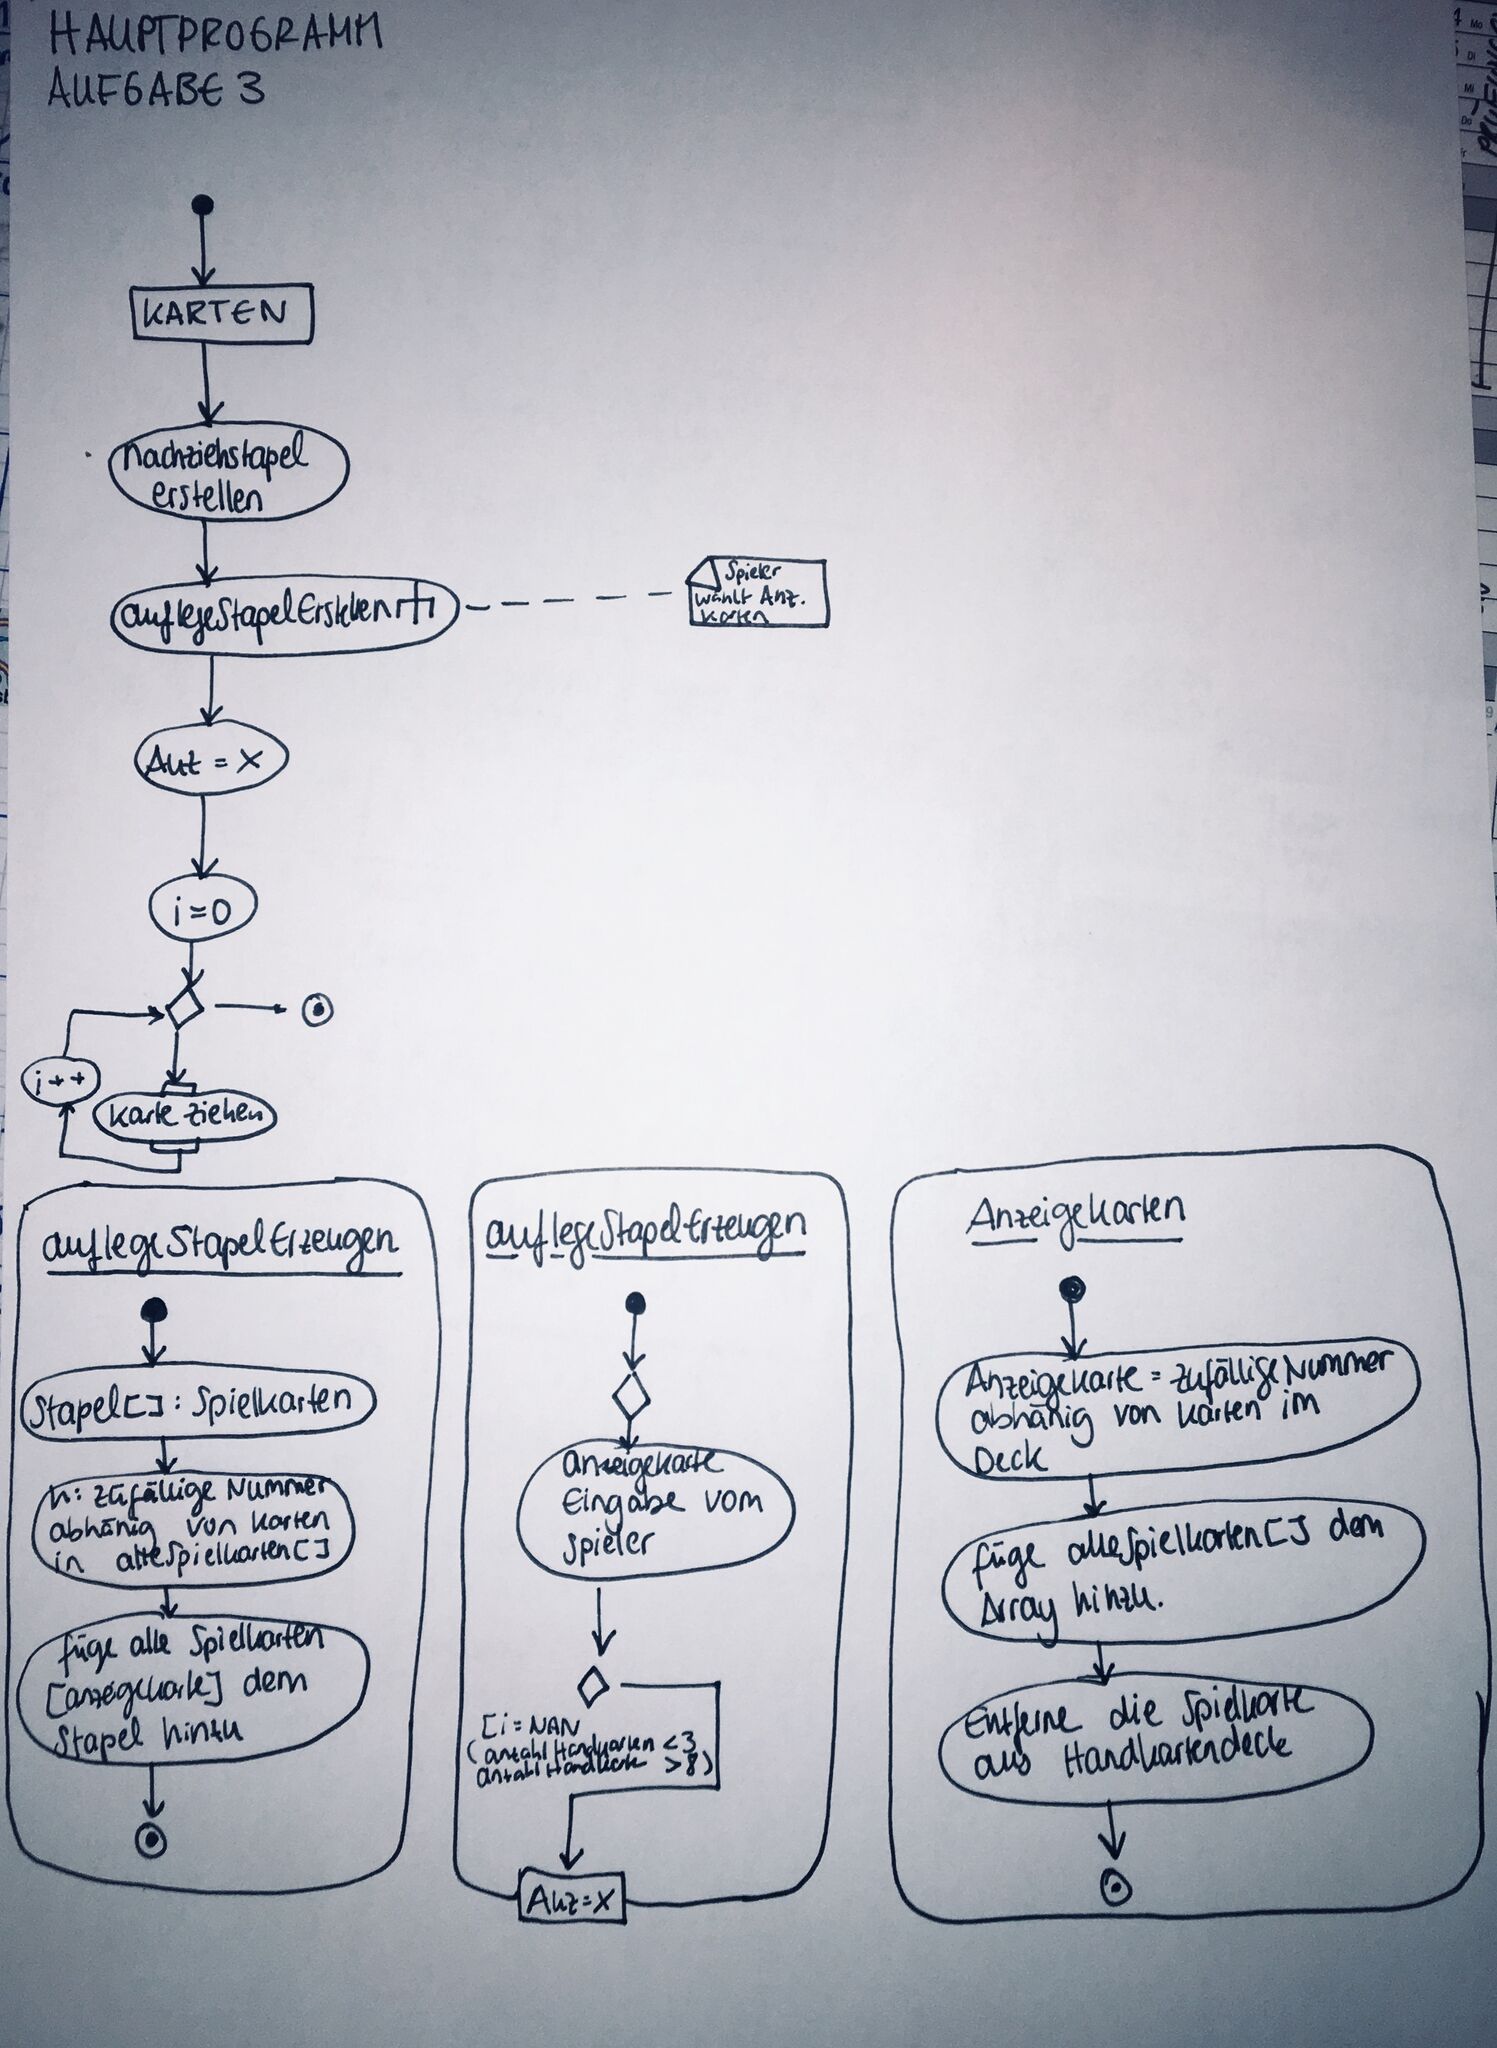 HAUPTPROGRAMM
AUFGABE 3
KARTEN
nachziehstapel
erstellen
auflegeStapelErstellen
Spieler
wählt Anz.
Karten
Anz = X
i = 0
i++
Karte ziehen
auflegeStapelErzeugen
Stapel[] : Spielkarten
n: zufällige Nummer
abhänig von Karten
in alleSpielkarten[]
füge alle Spielkarten
[anzeigekarte] dem
Stapel hinzu
auflegeStapelErzeugen
anzeigekarte
Eingabe vom
Spieler
[i = NAN
(anzahl Handkarten < 3
anzahl Handkarte > 8)
Anz = X
Anzeigekarten
Anzeigekarte = zufällige Nummer
abhänig von Karten im
Deck
füge alleSpielkarten[] dem
Array hinzu.
Entferne die Spielkarte
aus Handkartendeck